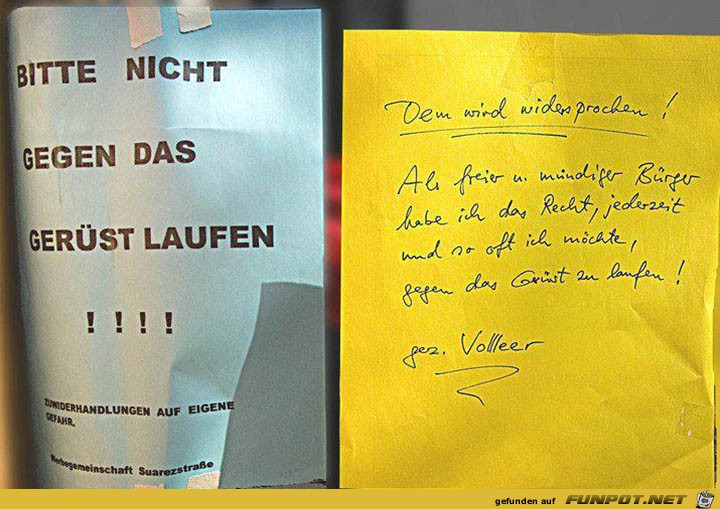 BITTE NICHT
GEGEN DAS
GERÜST LAUFEN
! ! ! !
ZUWIDERHANDLUNGEN AUF EIGENE
GEFAHR.
Werbegemeinschaft Suarezstraße
Dem wird widersprochen !
Als freier u. mündiger Bürger
habe ich das Recht, jederzeit
und so oft ich möchte,
gegen das Gerüst zu laufen !
gez. Vollleer
gefunden auf FUNPOT.NET